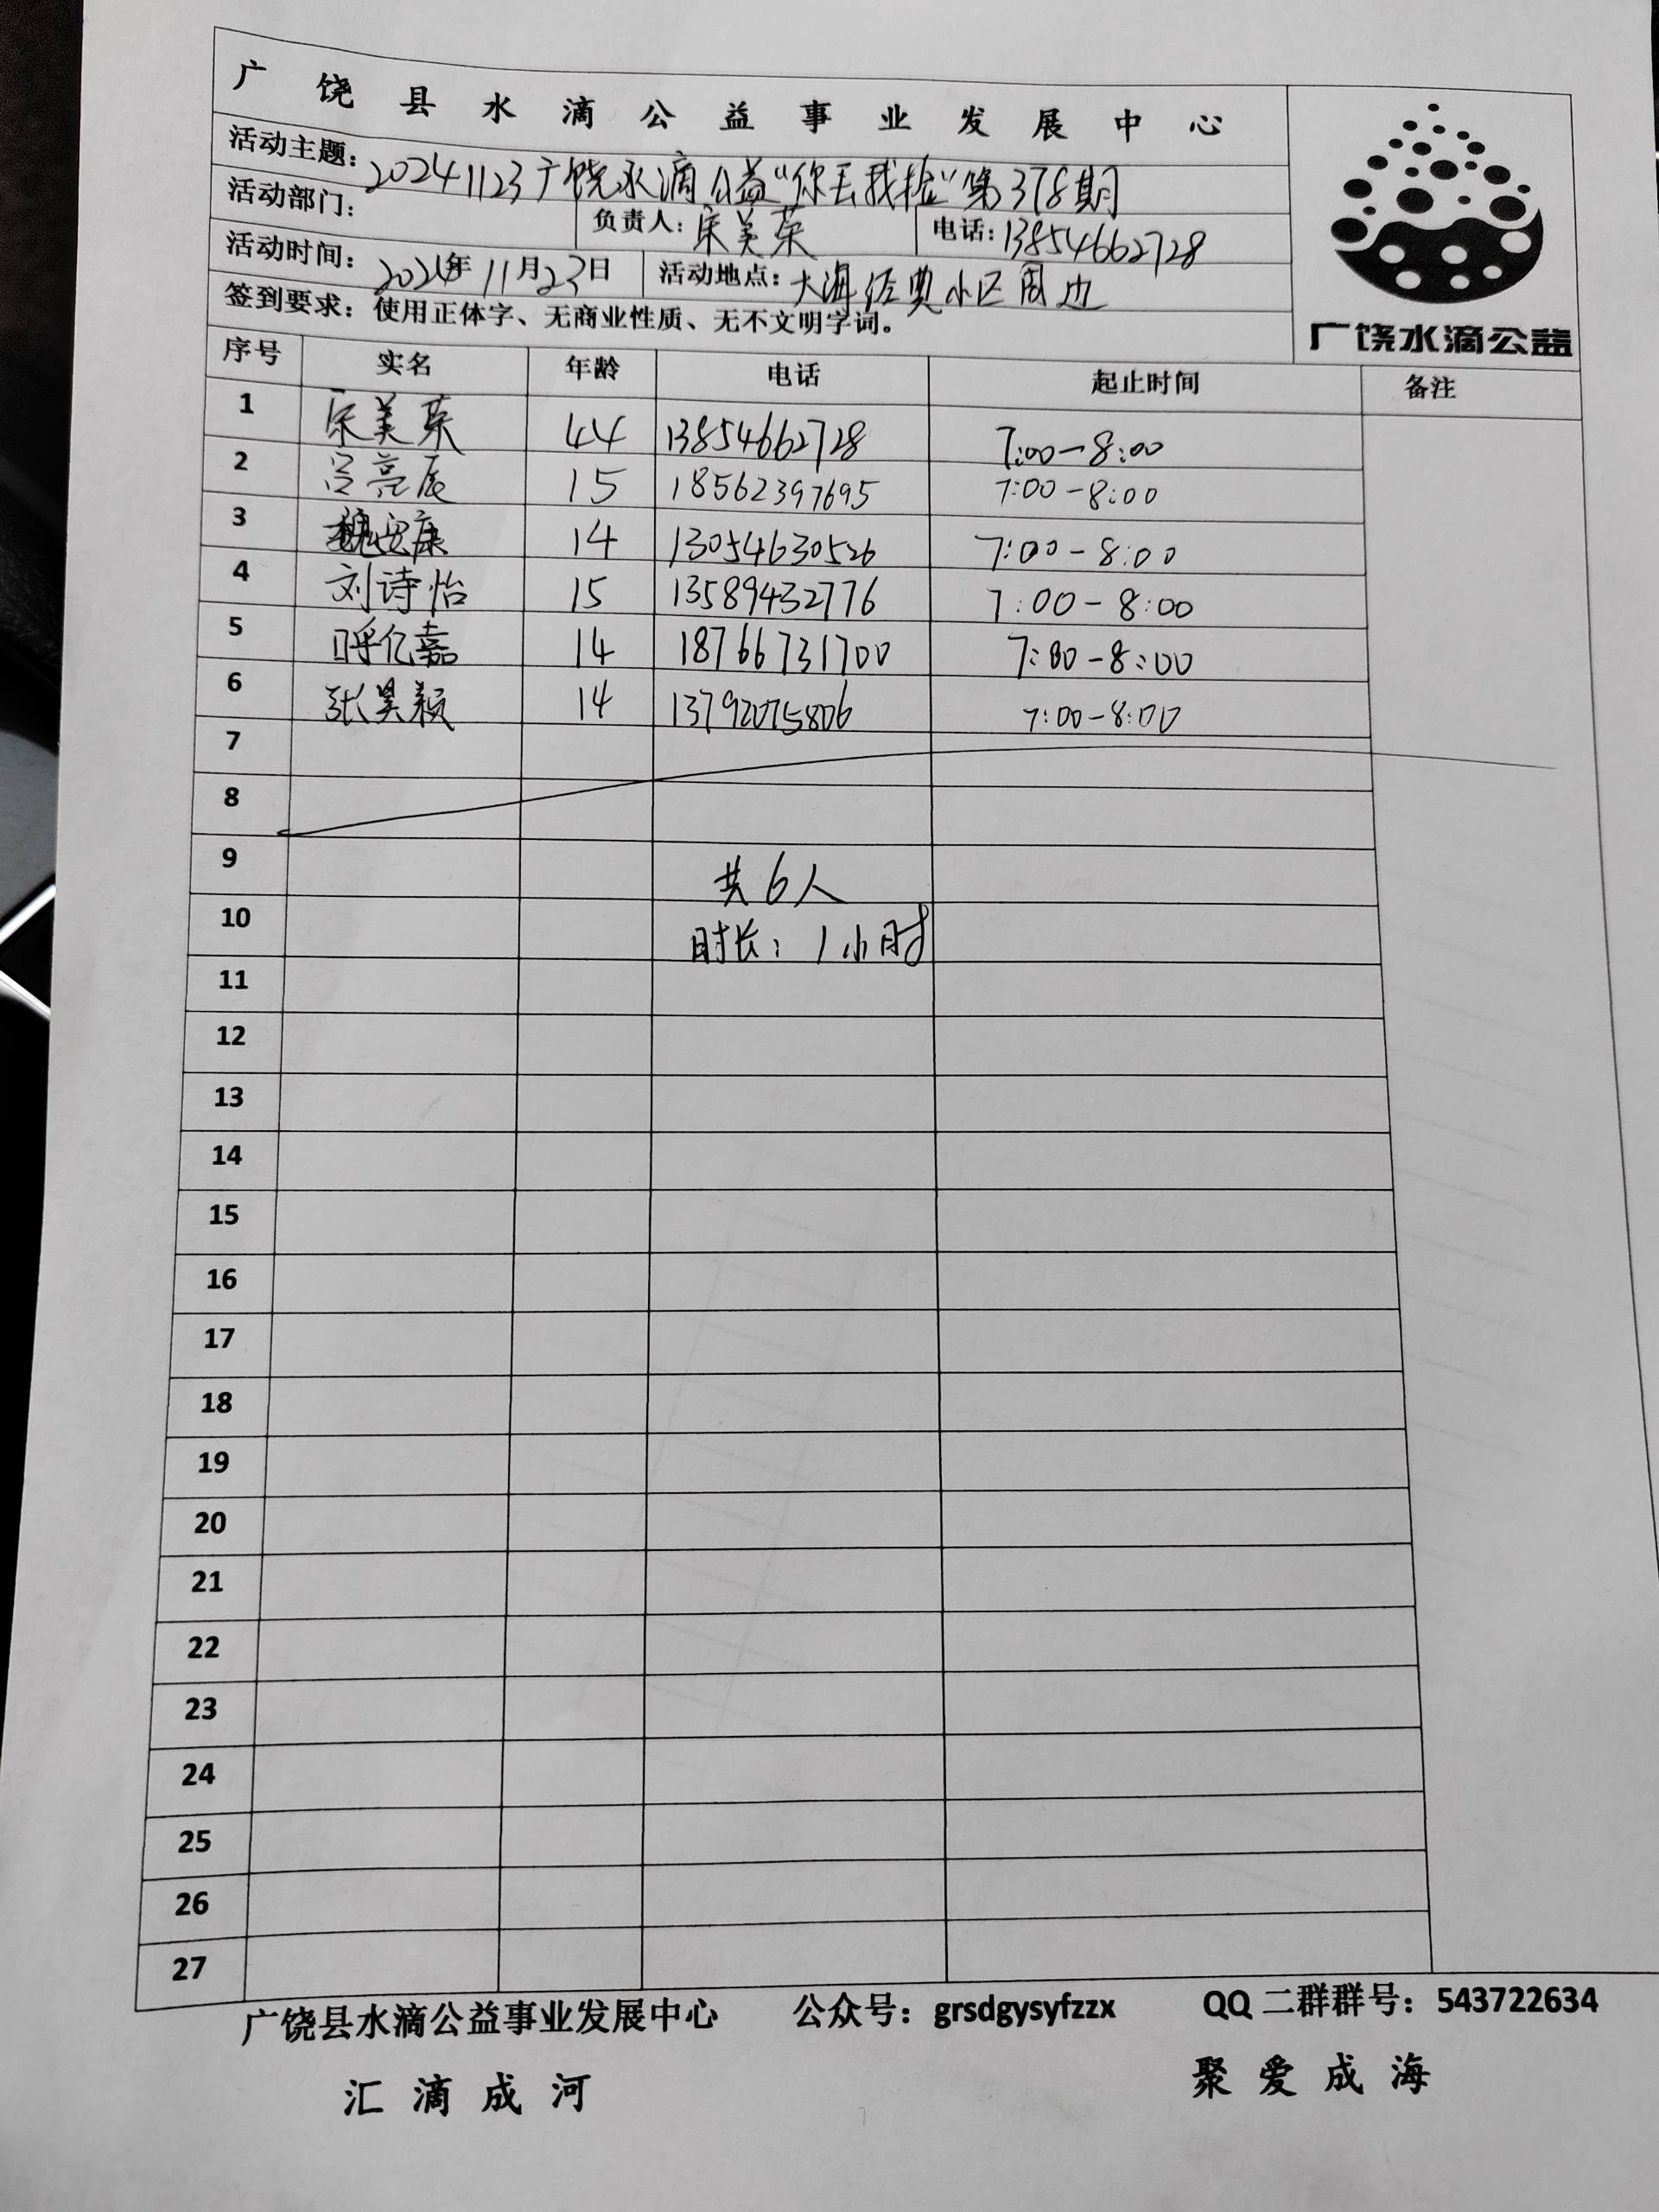 广饶县水滴公益事业发展中心
活动主题：20241123广饶水滴公益“你丢我捡”第378期
活动部门： 负责人：宋美荣 电话：13854662728
活动时间：2024年11月23日 活动地点：大海经典小区周边
签到要求：使用正体字、无商业性质、无不文明字词。
广饶水滴公益
序号 实名 年龄 电话 起止时间 备注
1 宋美荣 44 13854662728 7:00-8:00
2 吕亮辰 15 18562397695 7:00-8:00
3 魏安康 14 13054630526 7:00-8:00
4 刘诗怡 15 13589432776 7:00-8:00
5 呼亿嘉 14 18766731700 7:00-8:00
6 张昊颖 14 13792075806 7:00-8:00
7
8
9 共6人
10 时长：1小时
11
12
13
14
15
16
17
18
19
20
21
22
23
24
25
26
27
广饶县水滴公益事业发展中心 公众号：grsdgysyfzzx QQ二群群号：543722634
汇滴成河 聚爱成海